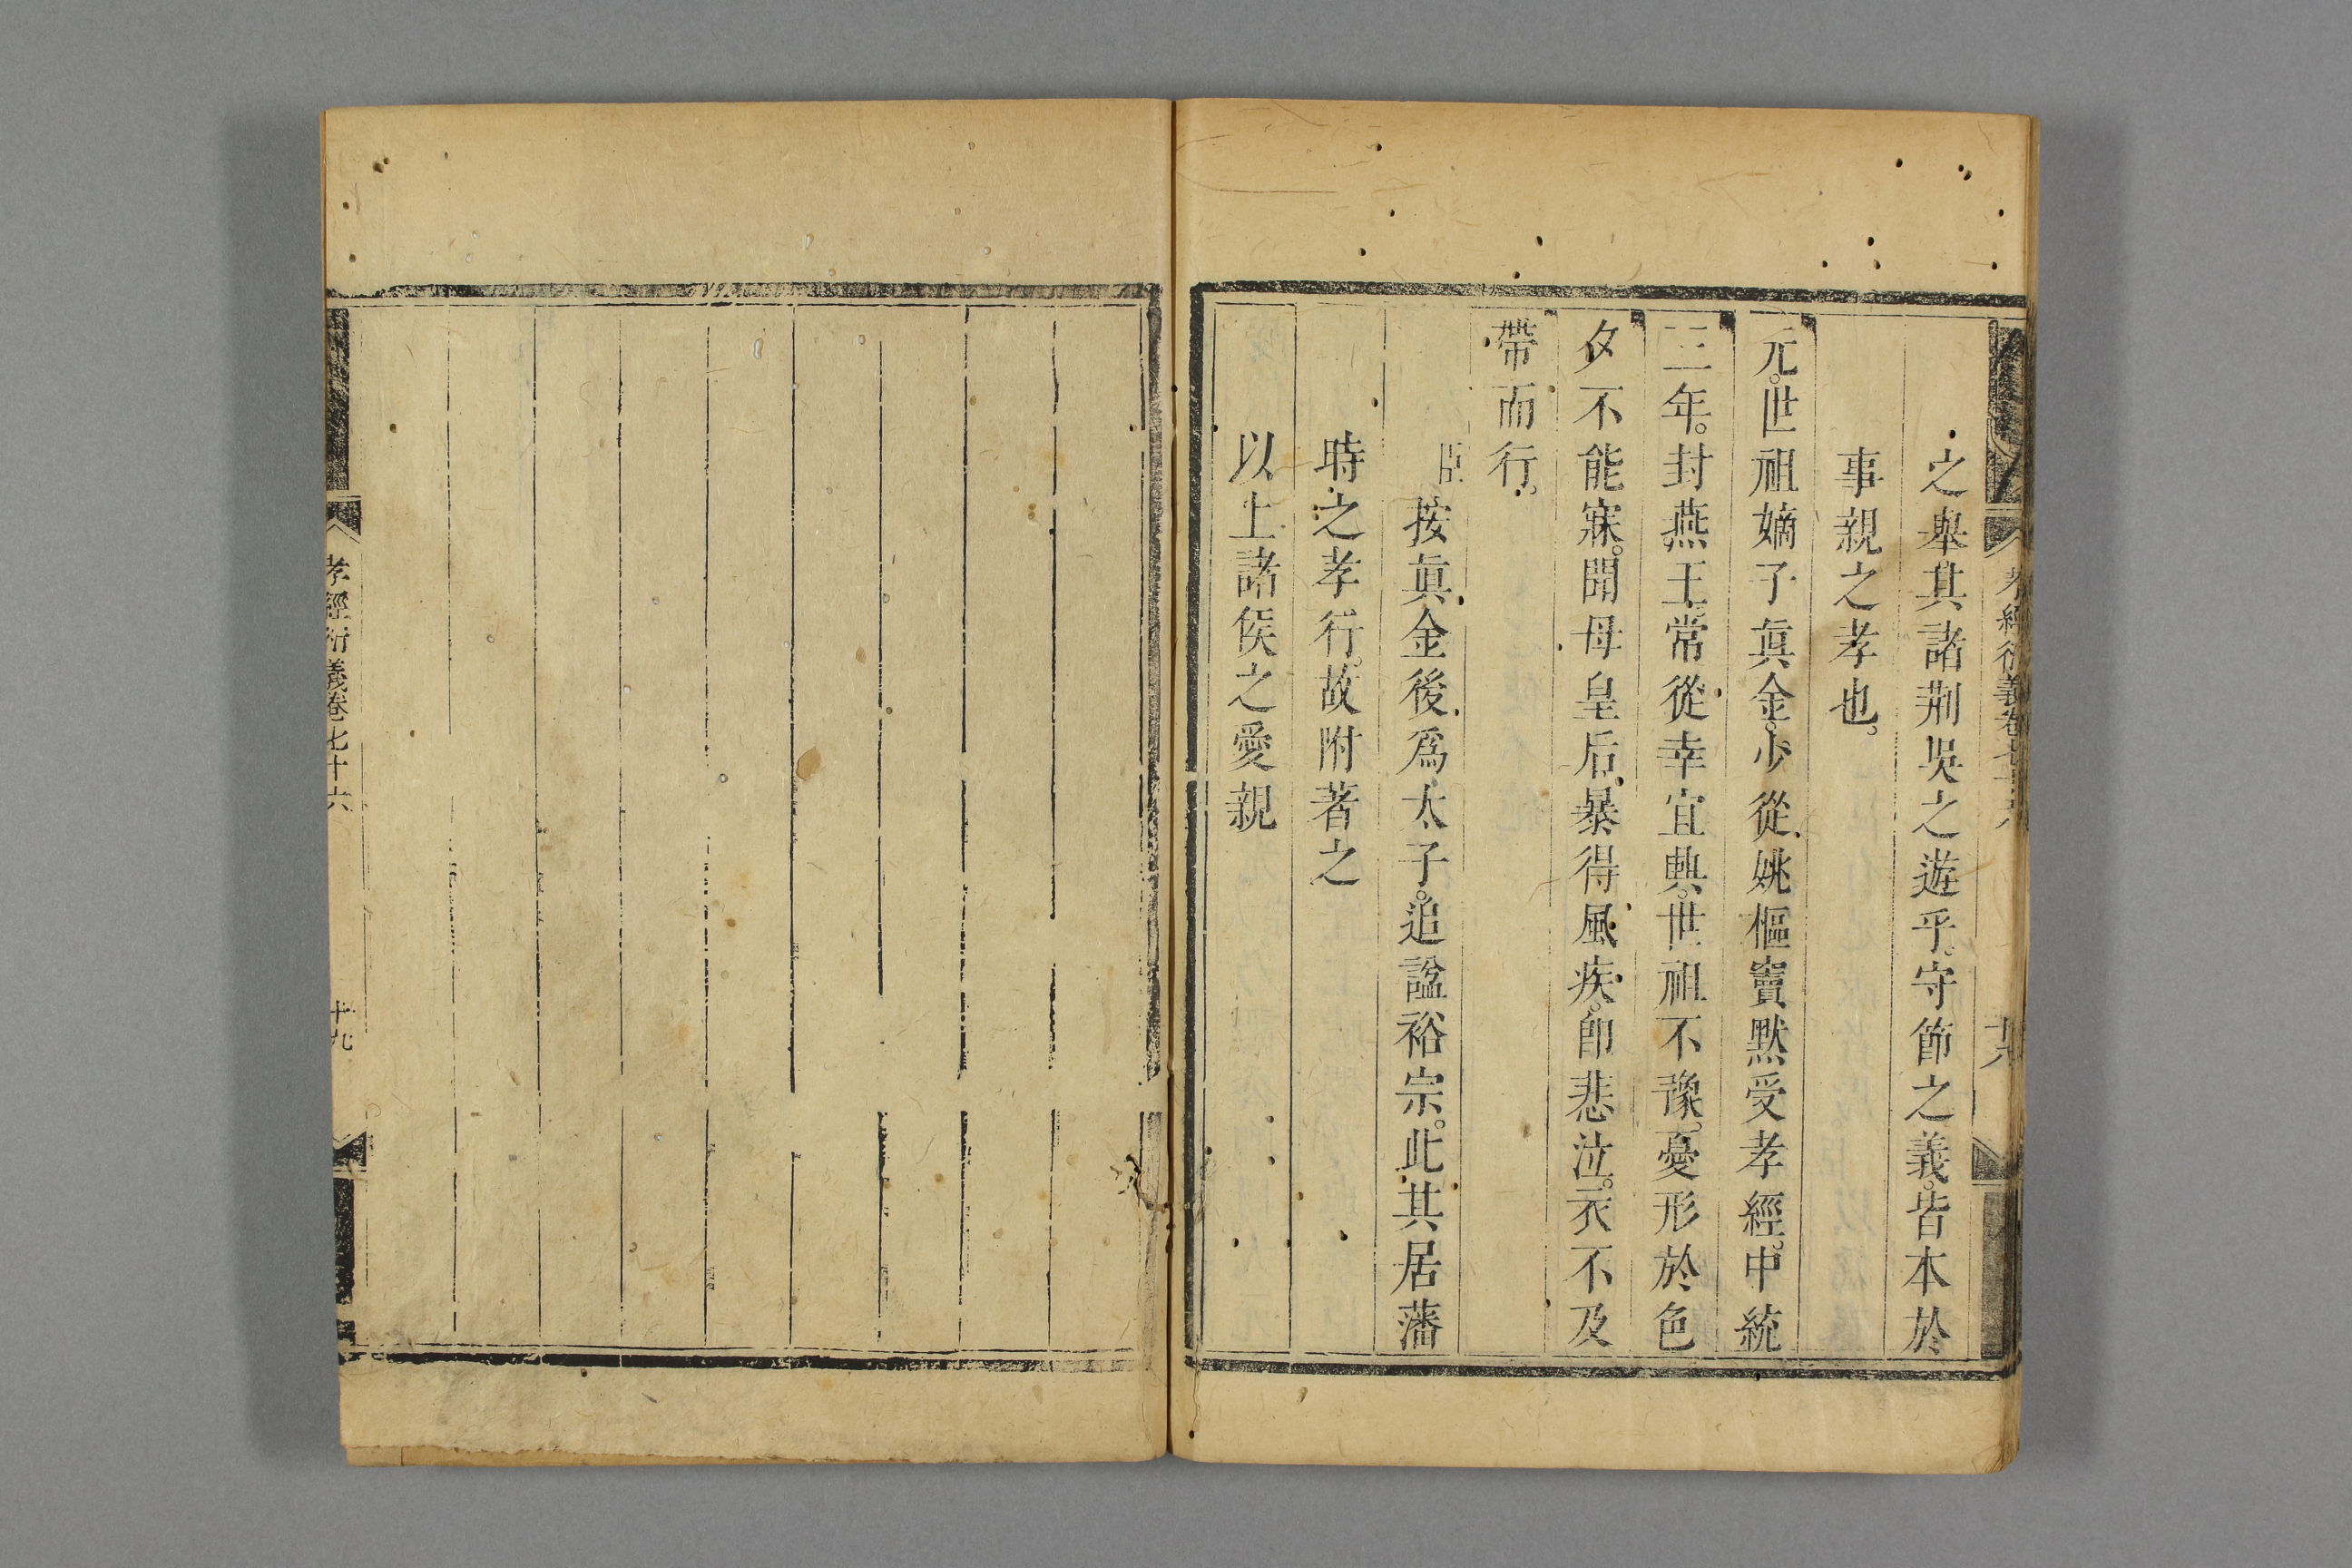 孝經衍義卷七十六
之舉其諸荆吳之遊乎。守節之義。皆本於
事親之孝也。
元。世祖嫡子眞金。少從姚樞竇黙受孝經。中統
三年。封燕王常從幸宜興。世祖不豫。憂形於色
夕不能寐。聞母皇后。暴得風疾。卽悲泣。衣不及
帶而行。
臣按眞金後爲太子。追諡裕宗。此其居藩
時之孝行。故附著之
以上諸侯之愛親
孝經衍義卷七十六
十九